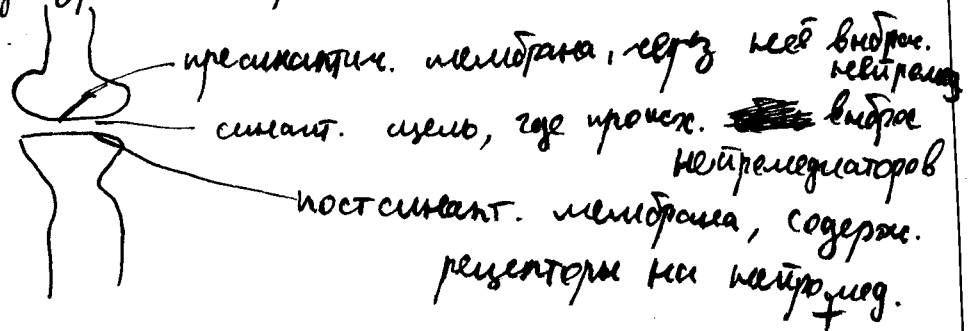 пресинаптич. мембрана, через неё выброс.
нейромед
синапт. щель, где происх. выброс
нейромедиаторов
постсинапт. мембрана, содерж.
рецепторы на нейромед.
+